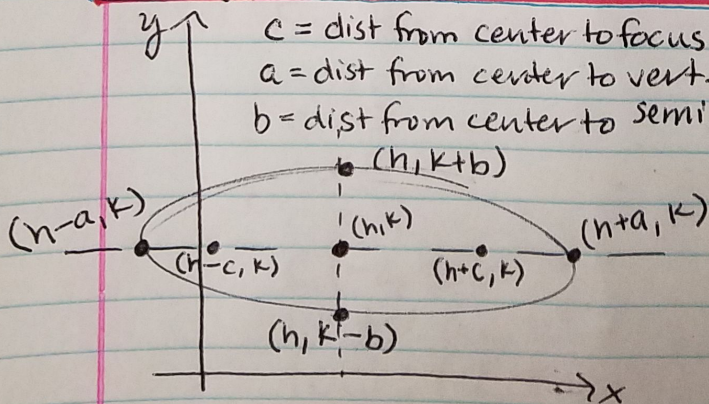 y
c = dist from center to focus
a = dist from center to vert.
b = dist from center to semi
(h, k+b)
(h-a, k)
(h, k)
(h+a, k)
(h-c, k)
(h+c, k)
(h, k-b)
x